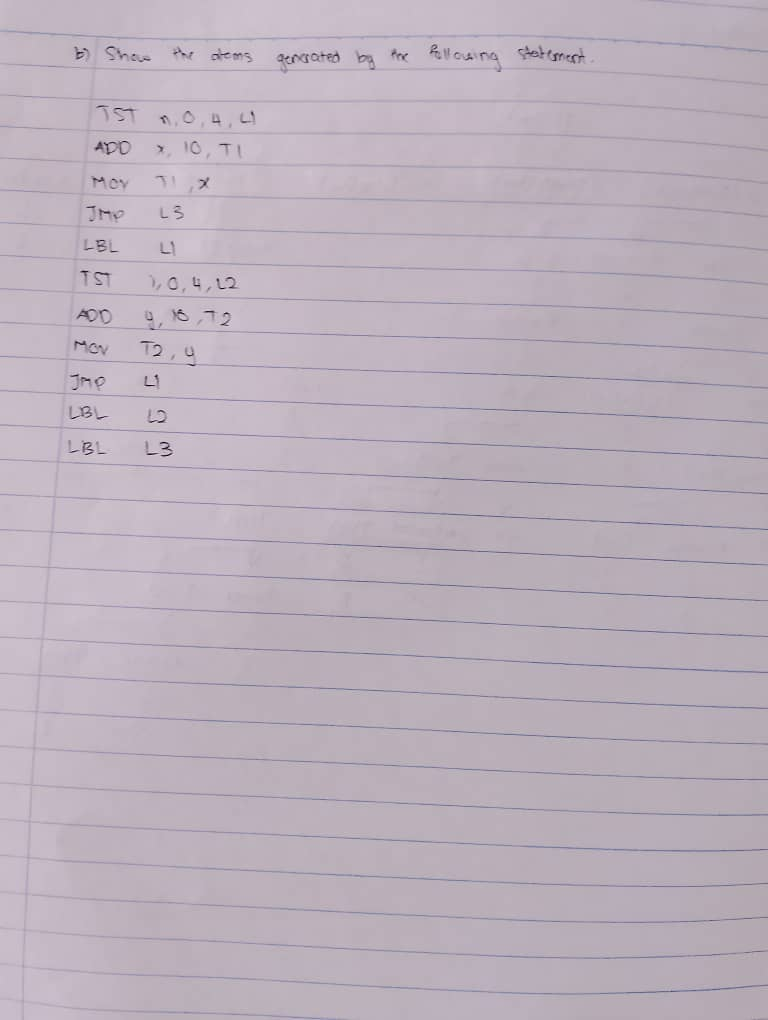 b) Show the atoms generated by the following statement.
TST n, 0, 4, L1
ADD x, 10, T1
MOV T1, x
JMP L3
LBL L1
TST i, 0, 4, L2
ADD y, 10, T2
MOV T2, y
JMP L1
LBL L2
LBL L3